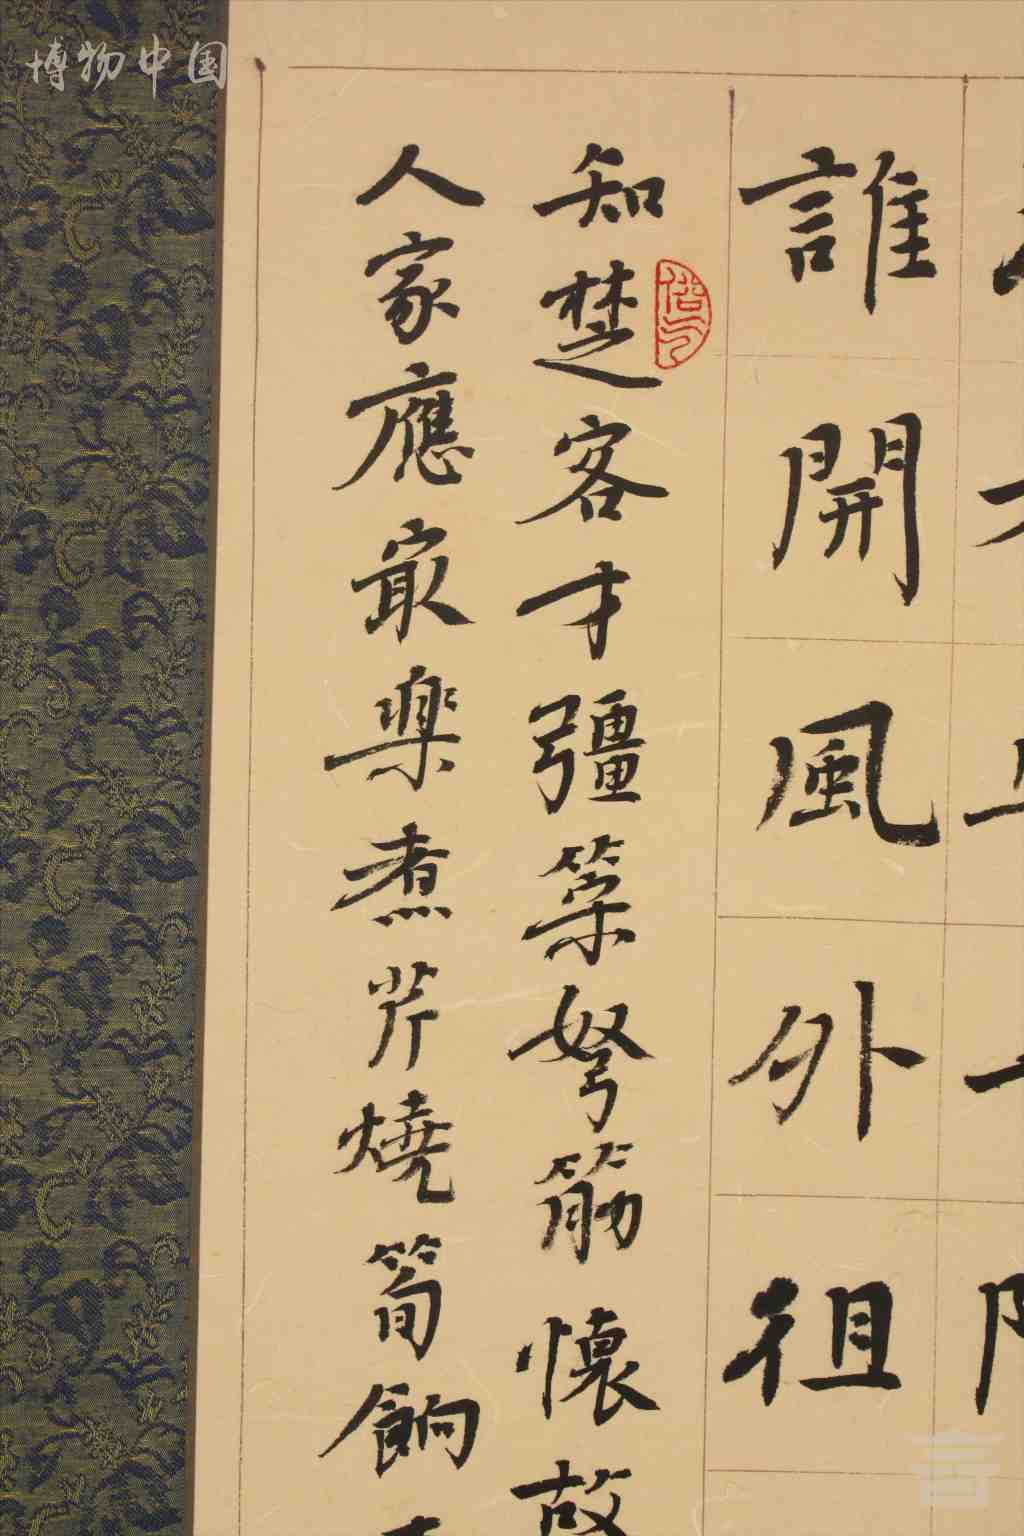 博物中国
誰開風外徂
知楚客才彊篥弩筋懷故
人家應最樂煮芹燒筍餉